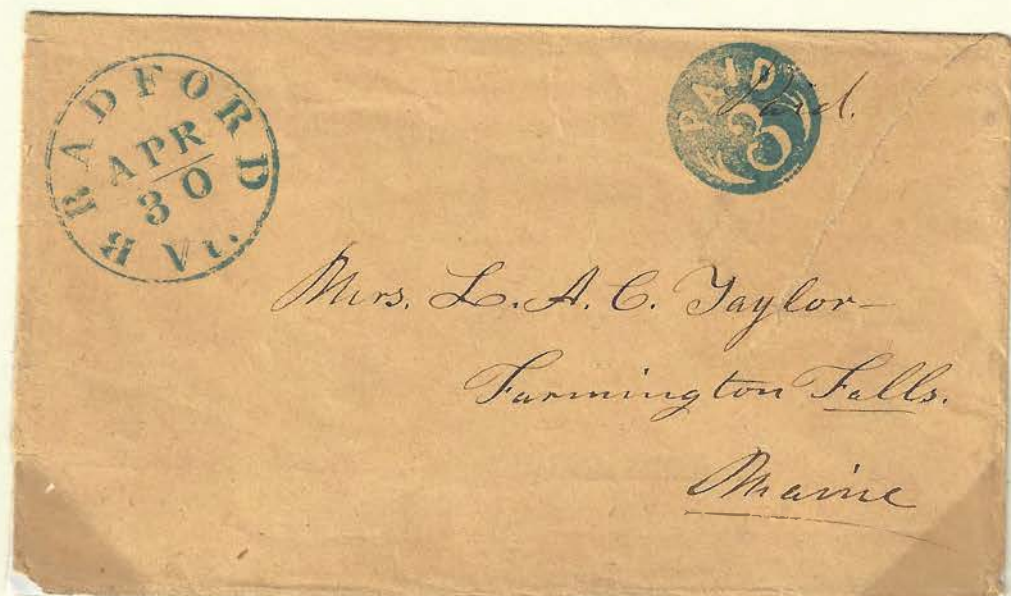 BRADFORD Vt.
APR
30
PAID
3
Paid.
Mrs. L. A. C. Taylor
Farmington Falls.
Maine